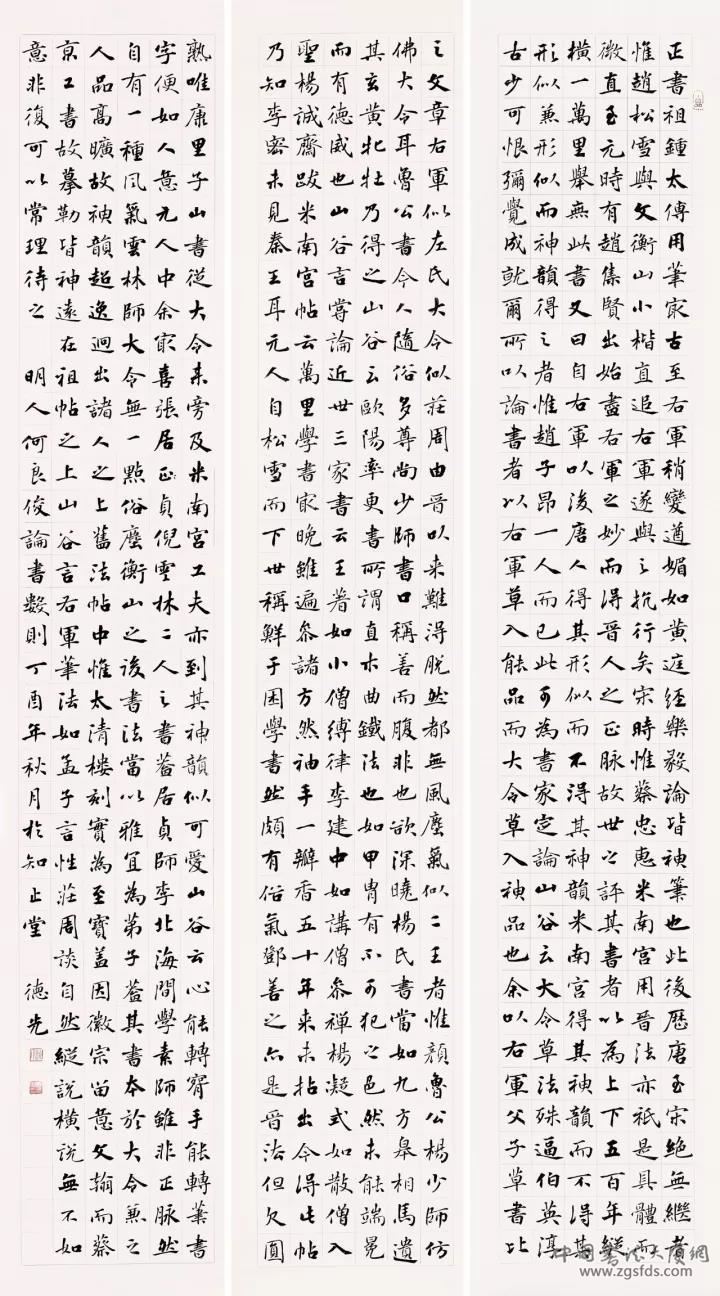 正書祖鍾太傅用筆冣古至右軍稍變遒媚如黃庭經樂毅論皆神筆也此後歷唐至宋絶無繼者
惟趙松雪與文衡山小楷直追右軍遂與之抗行矣宋時惟蔡忠惠米南宮用晉法亦祇是具體而
微直至元時有趙集賢出始盡右軍之妙而得晉人之正脉故世之評其書者以為上下五百年縱
橫一萬里舉無此書又曰自右軍以後唐人得其形似而不得其神韻米南宮得其神韻而不得其
形似兼形似而神韻得之者惟趙子昂一人而已此可為書家定論山谷云大令草法殊逼伯英淳
古少可恨彌覺成就爾所以論書者以右軍草入能品而大令草入神品也余以右軍父子草書比
之文章右軍似左氏大令似莊周由晉以来難得脫然都無風塵氣似二王者惟顏魯公楊少師仿
佛大令耳魯公書今人隨俗多尊尚少師書口稱善而腹非也欲深曉楊氏書當如九方皋相馬遺
其玄黃牝牡乃得之山谷云歐陽率更書所謂直木曲鐵法也如甲胄有不可犯之色然未能端冕
而有德威也山谷言嘗論近世三家書云王著如小僧縛律李建中如講僧參禪楊凝式如散僧入
聖楊誠齋跋米南宮帖云萬里學書冣晚雖遍參諸方然袖手一瓣香五十年来未拈出今得此帖
乃知李密未見秦王耳元人自松雪而下世稱鮮于困學書然頗有俗氣鄧善之亦是晉法但欠圓
熟唯康里子山書從大令来旁及米南宮工夫亦到其神韻似可愛山谷云心能轉手能轉筆書
字便如人意元人中余冣喜張居正貞倪雲林二人之書蓋居貞師李北海間學素師雖非正脉然
自有一種風氣雲林師大令無一點俗塵衡山之後書法當以雅宜為第子蓋其書本於大令兼之
人品高曠故神韻超逸迥出諸人之上舊法帖中惟太清樓刻實為至寶蓋因徽宗留意文翰而蔡
京工書故摹勒皆神遠在祖帖之上山谷言右軍筆法如孟子言性莊周談自然縱說橫說無不如
意非復可以常理待之 明人何良俊論書數則丁酉年秋月於知止堂 德先
中国书法大广網
www.zgsfds.com